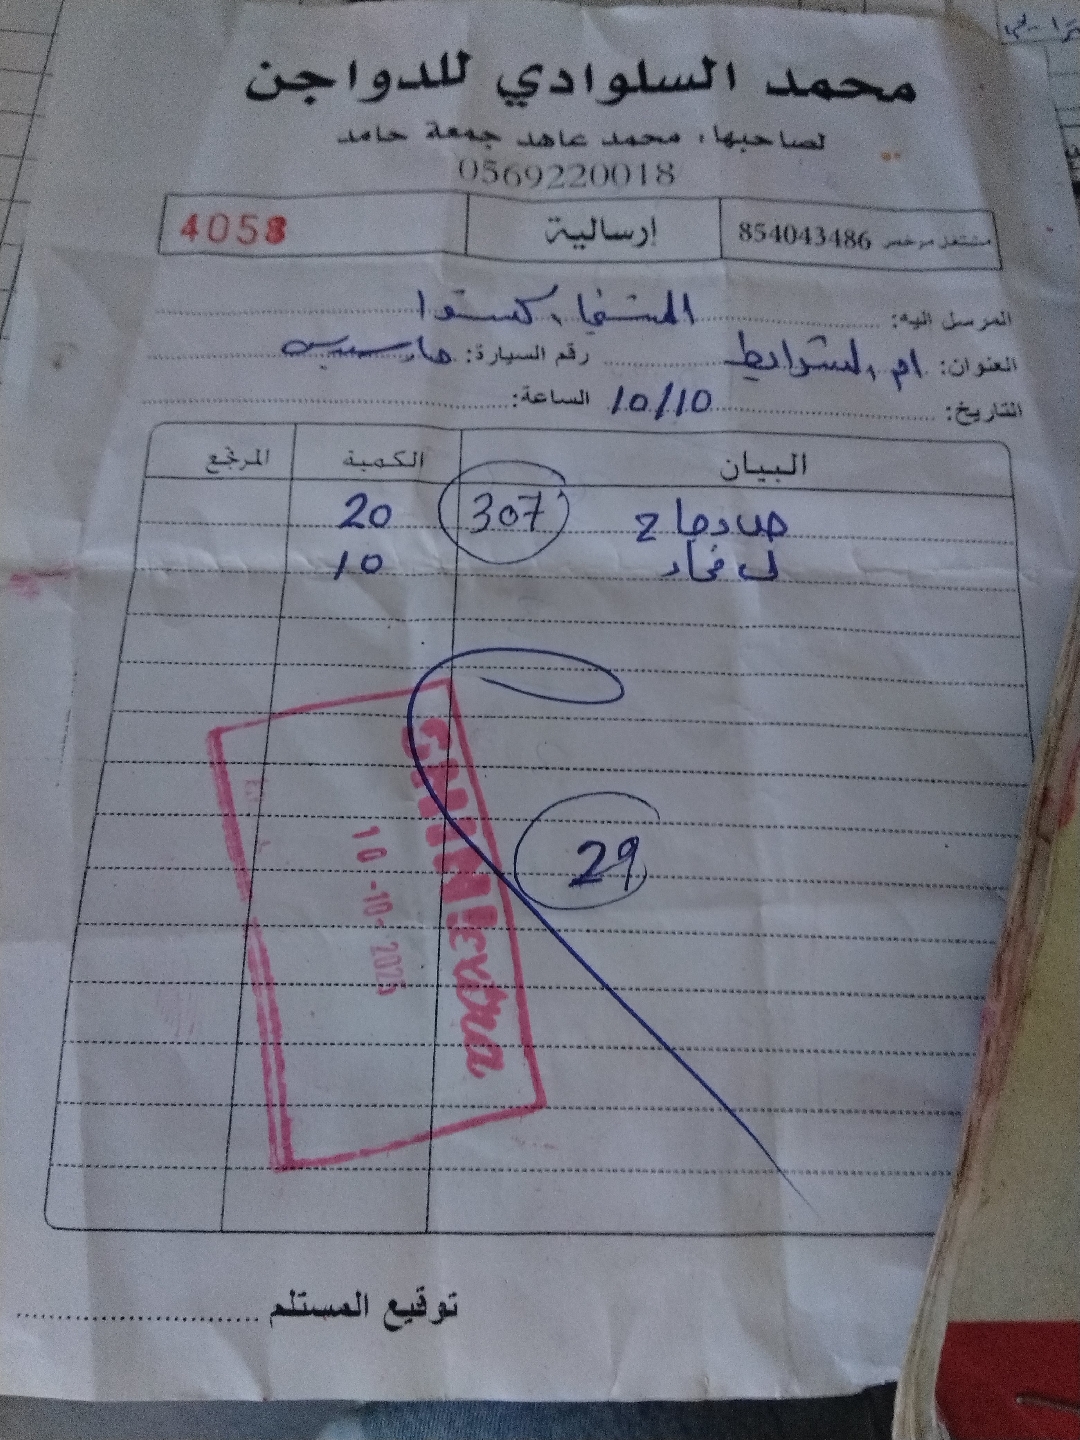 محمد السلوادي للدواجن
لصاحبها: محمد عاهد جمعة حامد
0569220018
مشتغل مرخص 854043486 إرسالية 4058
المرسل اليه:
العنوان: ام الشرايط رقم السيارة:
التاريخ: 10/10 الساعة:
البيان الكمية المرتجع
دجاج 307 20
10
29
10-10-2025
توقيع المستلم